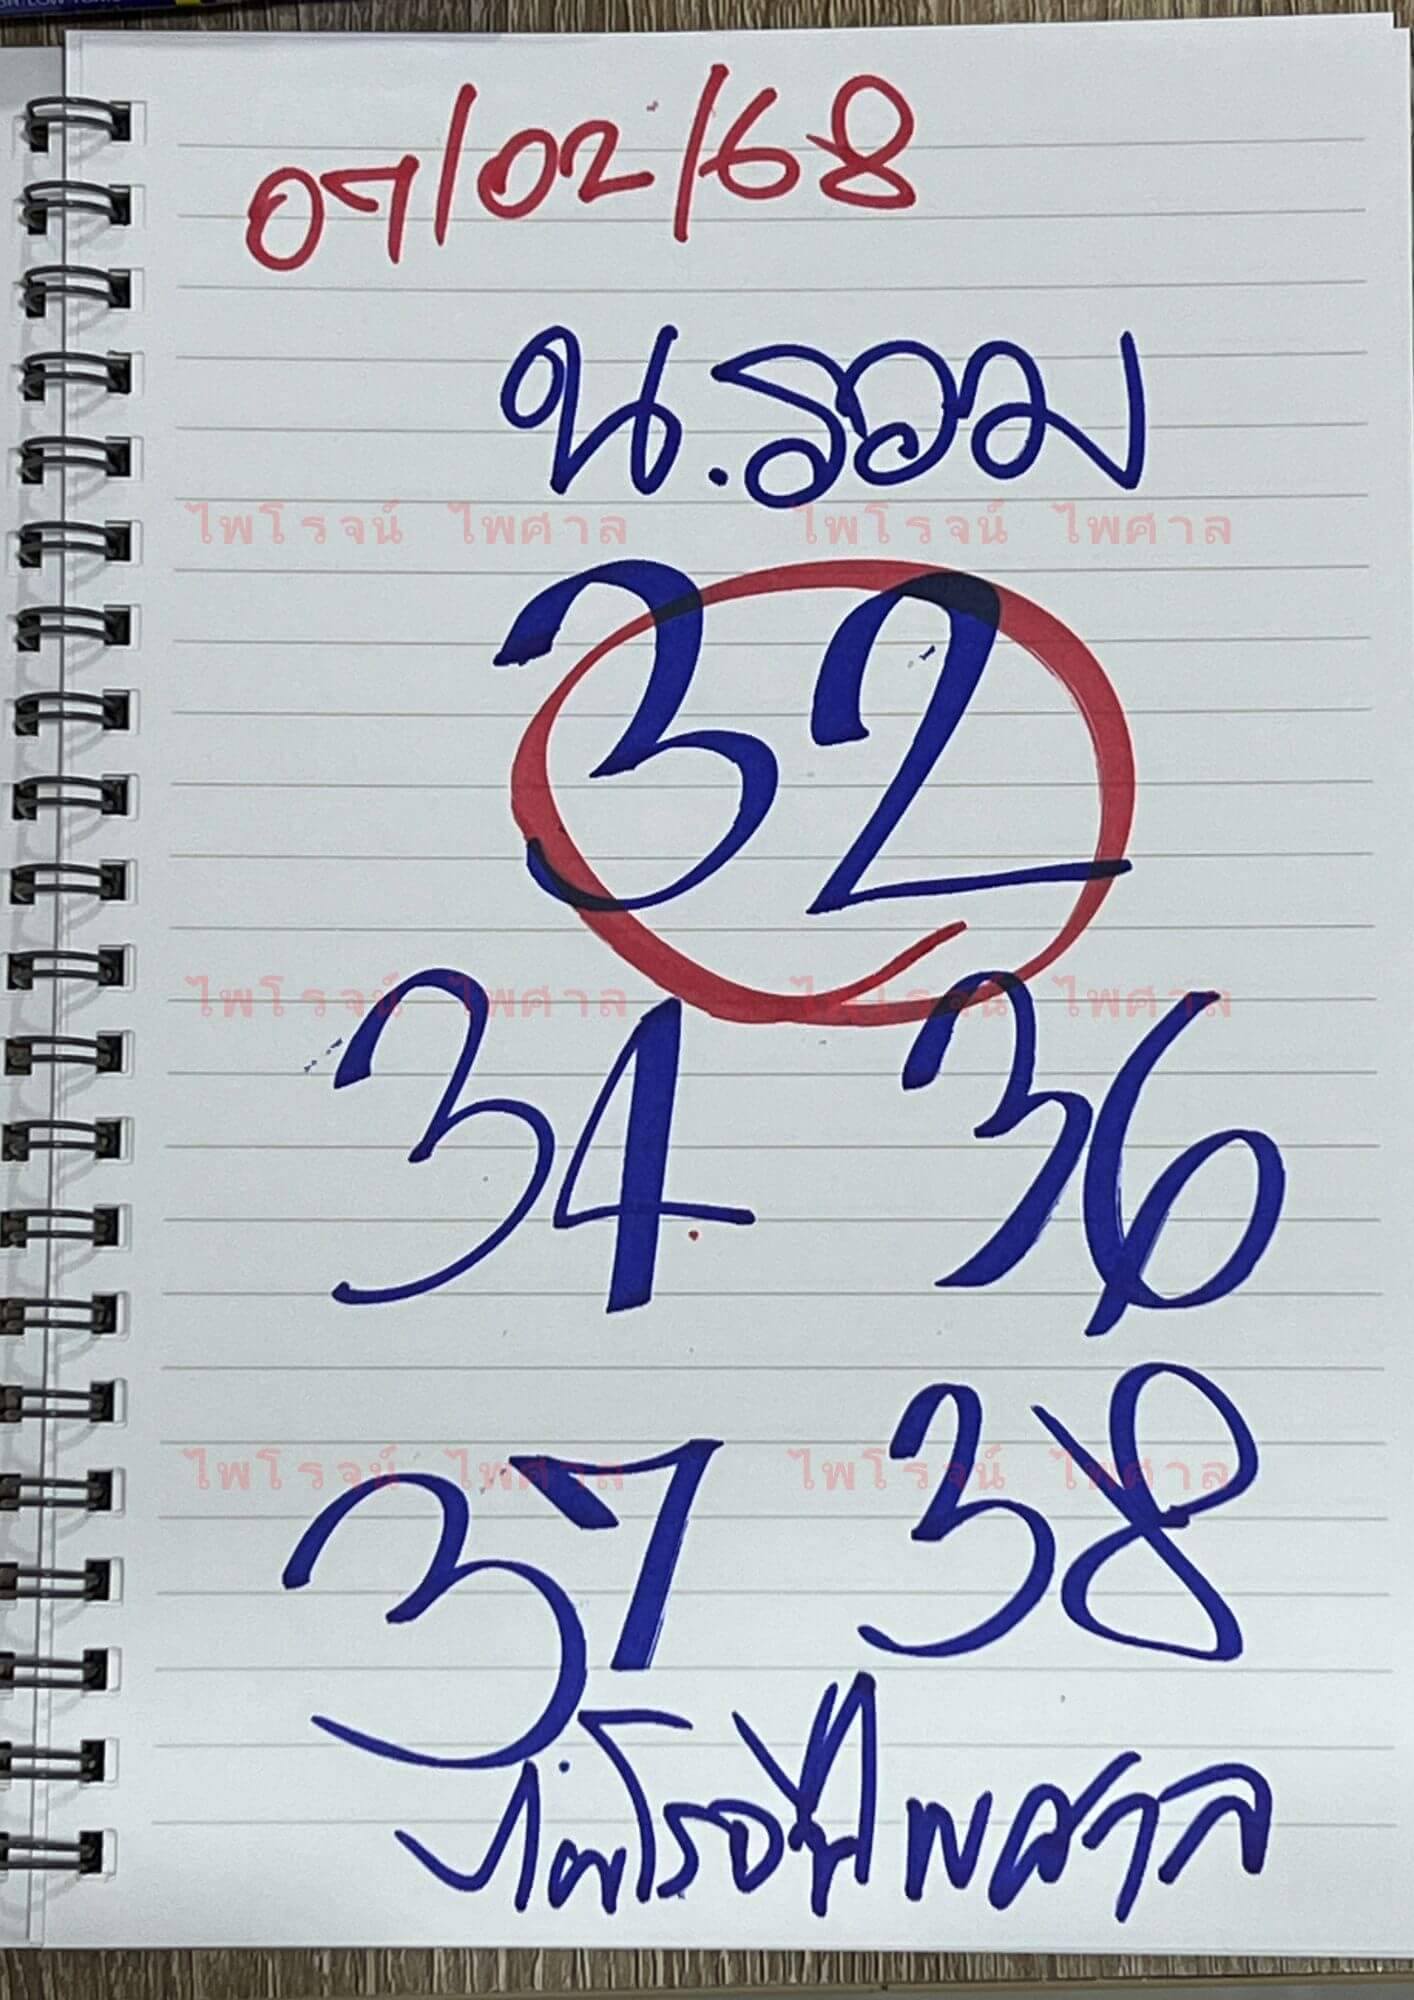 07/02/68
น.รวม
ไพโรจน์ ไพศาล ไพโรจน์ ไพศาล
32
ไพโรจน์ ไพศาล ไพโรจน์ ไพศาล
34 36
37 38
ไพโรจน์ ไพศาล ไพโรจน์ ไพศาล
ไพโรจน์ ไพศาล